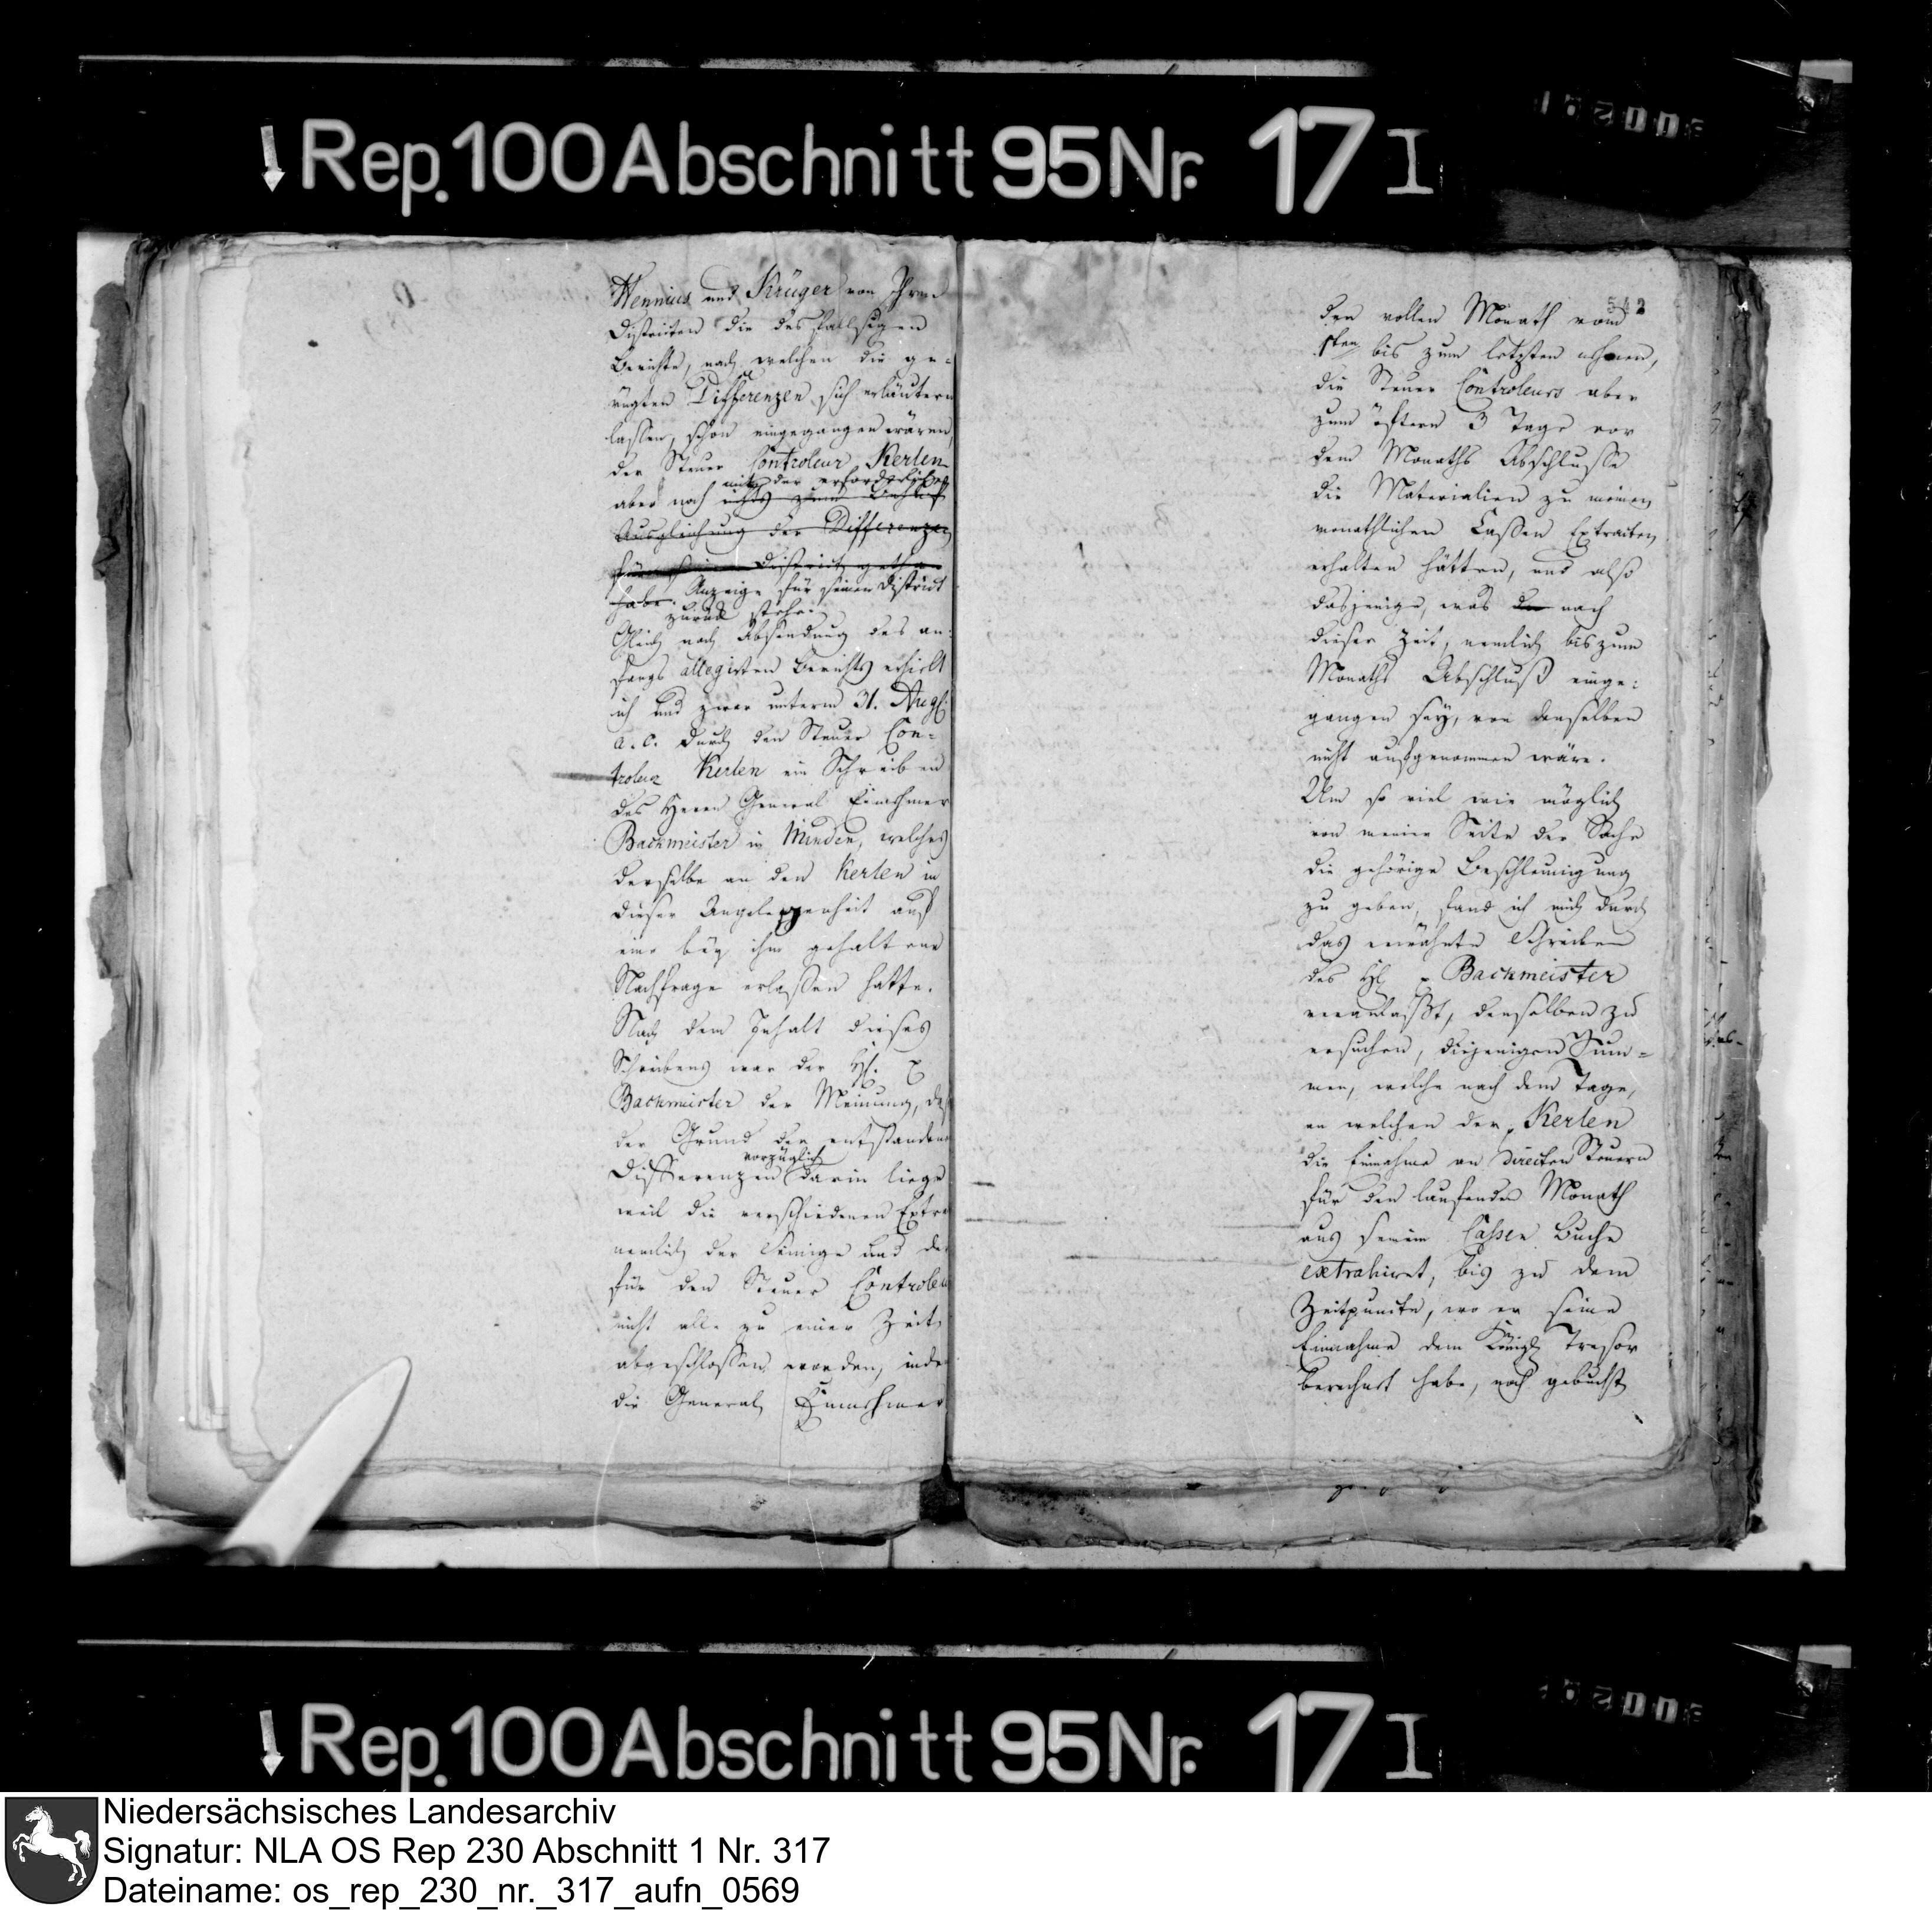 Rep. 100 Abschnitt 95 Nr. 17 I
Hennius und Krüger von Ihren
Districten die desfallsigen
Berichte, nach welchen die ge-
rügten Differenzen sich erläutern
lassen, schon eingegangen wären,
der Steuer Controleur Kerlen
mit der erforderlichen
aber noch nichts zum
Ausgleichung der Differenzen
District gethan
habe. Anzeige für seinen District
zurück stehe.
Gleich nach Absendung des an-
fangs allegirten Berichts erhielt
ich und zwar unterm 31. Aug.
a. c. durch den Steuer Con-
troleur Kerlen ein Schreiben
des Herrn General Einnehmer
Backmeister in Minden, welches
derselbe an den Kerlen in
dieser Angelegenheit auf
eine bey ihm gehaltene
Nachfrage erlassen hatte.
Nach dem Inhalt dieses
Schreibens war der H.
Backmeister der Meinung, daß
der Grund der entstandenen
vorzüglich
Differenzen darin liege
weil die verschiedenen Extra
nemlich der Seinige und de
für den Steuer Controleu
nicht alle zu einer Zeit
abgeschlossen worden, inde
die General Einnehmer
542
den vollen Monath vom
1sten bis zum letzten nehmen,
die Steuer Controleurs aber
zum öftern 3 Tage vor
dem Monaths Abschlusse
die Materialien zu meinen
monathlichen Cassen Extracten
erhalten hätten, und also
dasjenige, was nach
dieser Zeit, nemlich bis zum
Monaths Abschluß einge-
gangen sey, von denselben
nicht aufgenommen wäre.
Um so viel wie möglich
von meiner Seite der Sache
die gehörige Beschleunigung
zu geben, fand ich mich durch
das erwähnte Schreiben
des H. Backmeister
veranlaßt, denselben zu
ersuchen, diejenigen Sum-
men, welche nach dem Tage,
an welchen der Kerlen
die Einnahme an directen Steuern
für den laufenden Monath
aus seinem Cassen Buche
extrahiret, bis zu dem
Zeitpuncte, wo er seine
Einnahme dem Königl Tresor
berechnet habe, noch gebucht
Rep. 100 Abschnitt 95 Nr. 17 I
Niedersächsisches Landesarchiv
Signatur: NLA OS Rep 230 Abschnitt 1 Nr. 317
Dateiname: os_rep_230_nr._317_aufn_0569